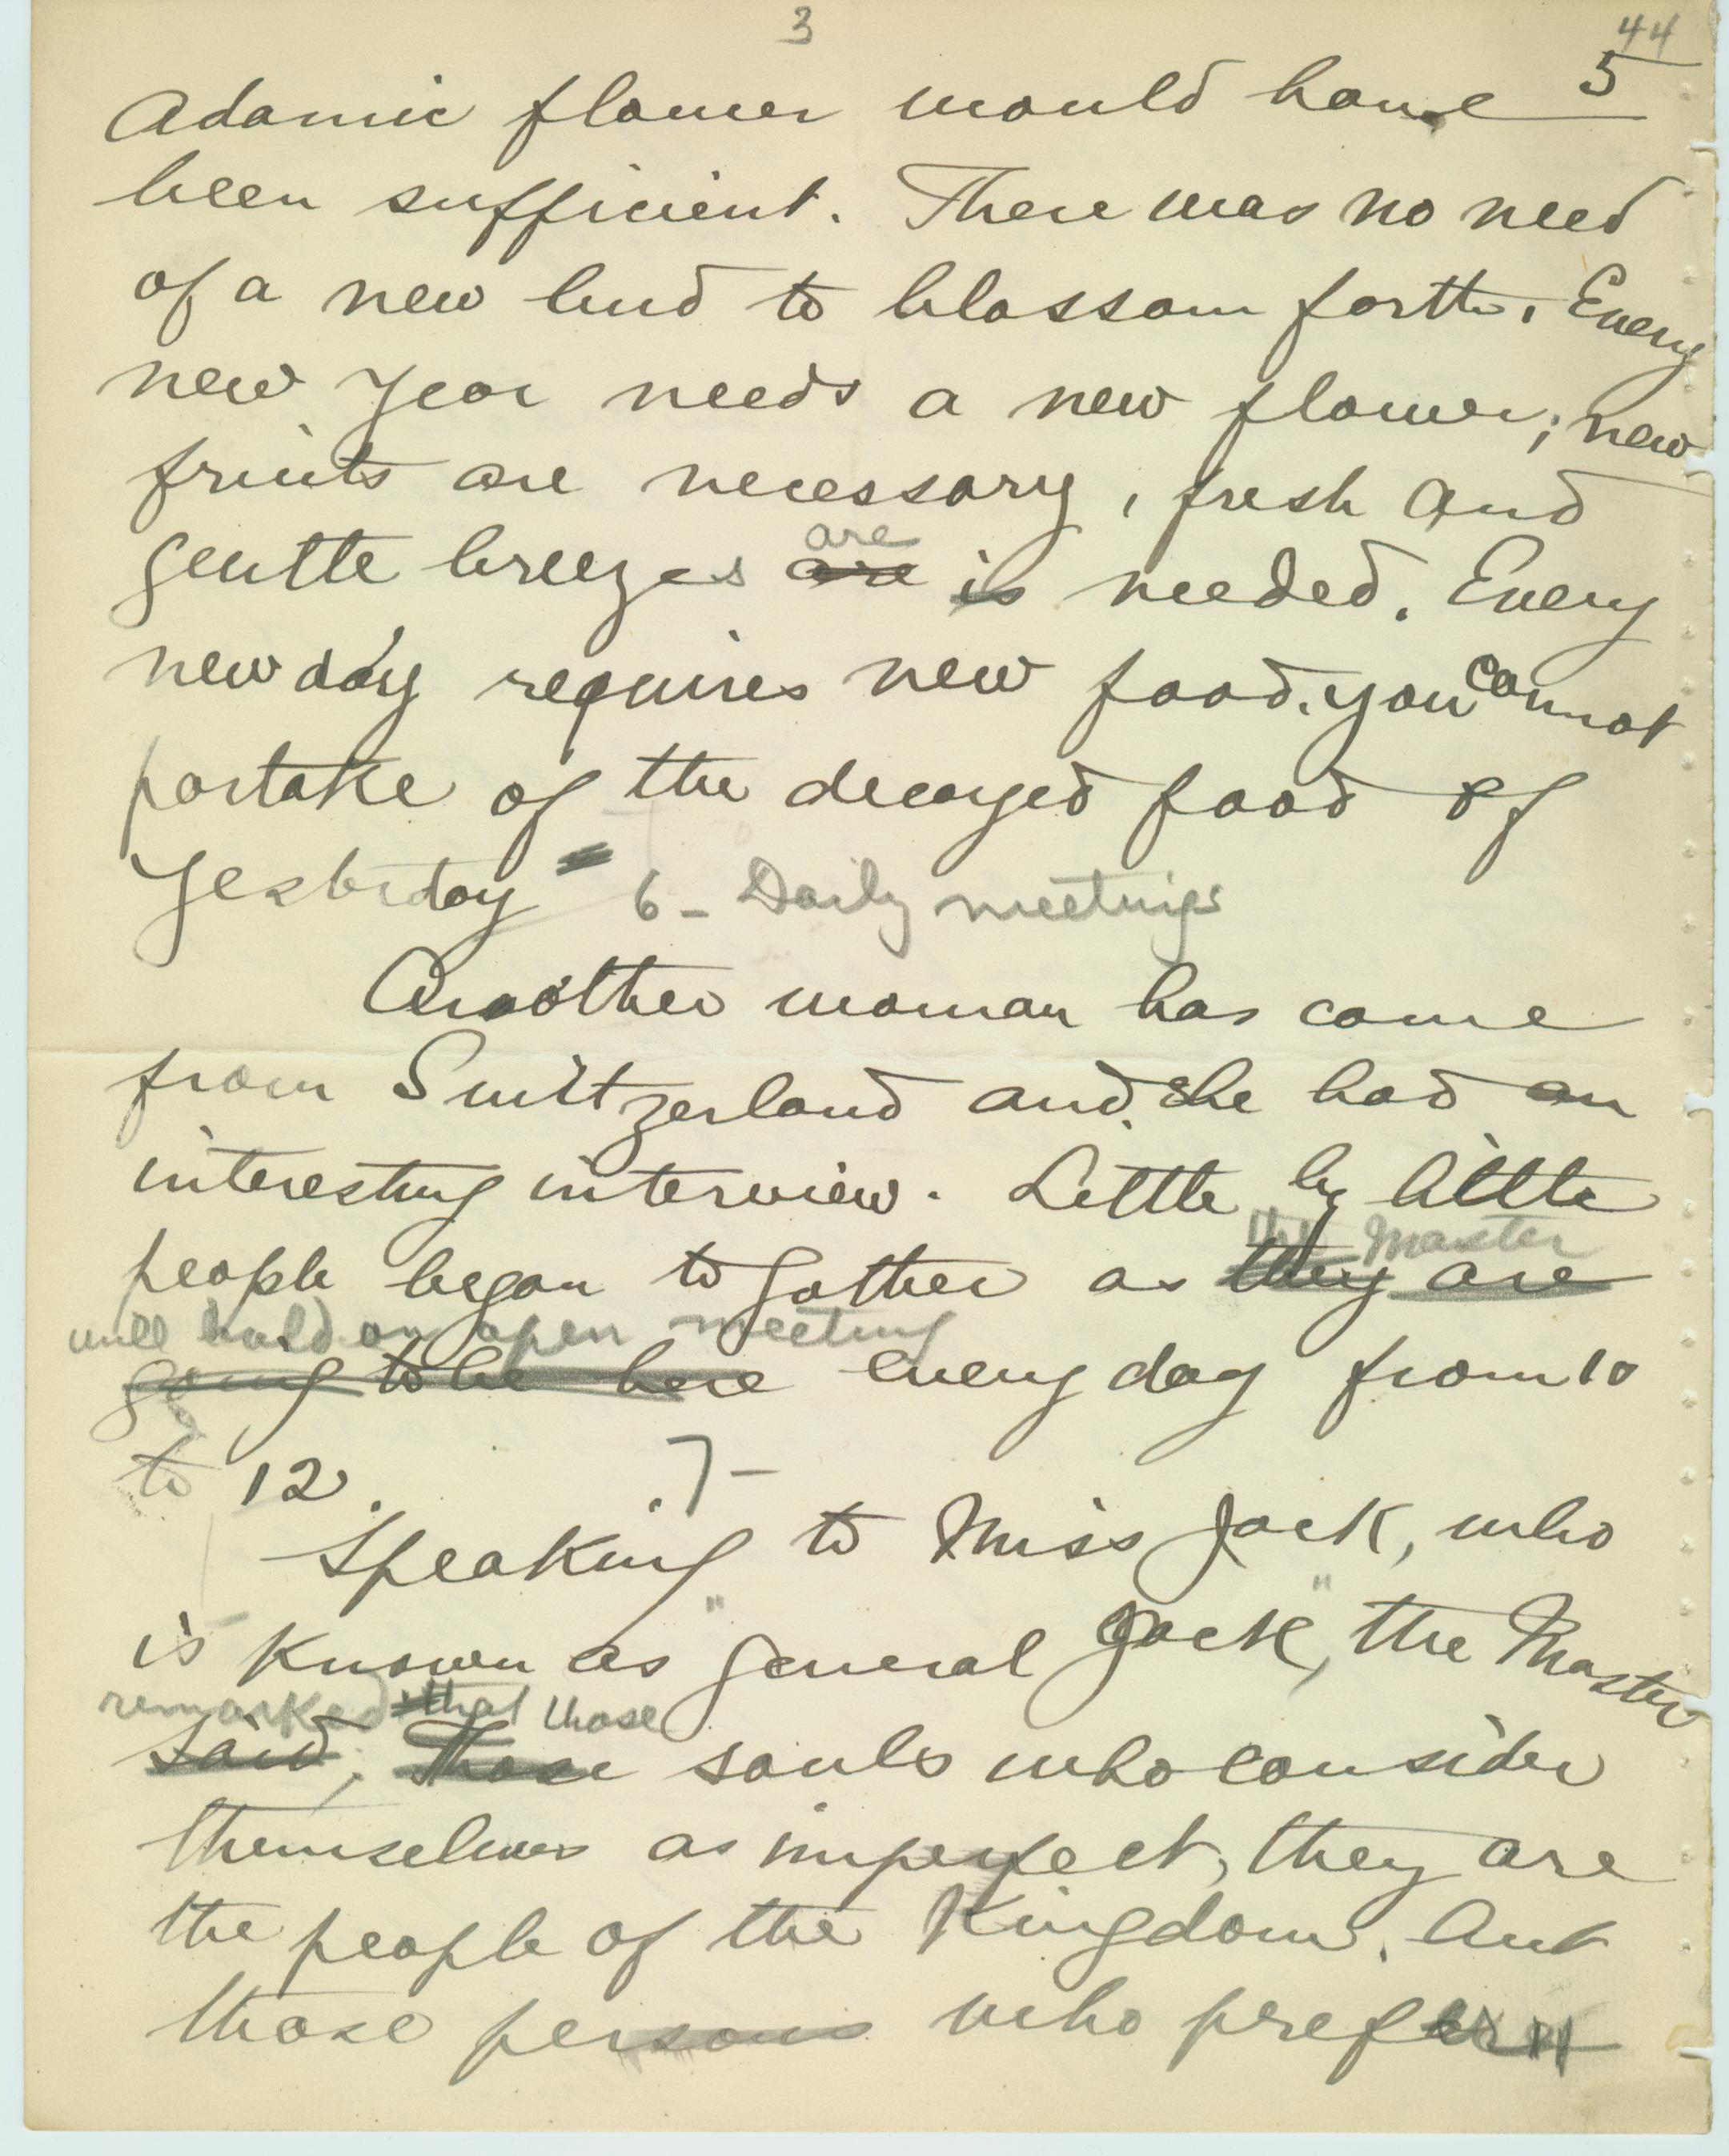 3
44
5
Adamic flower would have
been sufficient. There was no need
of a new bud to blossom forth. Every
new year needs a new flower; new
fruits are necessary, fresh and
are
gentle breezes are is needed. Every
new day requires new food. you cannot
partake of the decayed food of
yesterday
6 - Daily meetings
Another woman has come
from Switzerland and she had an
interesting interview. Little by little
the Master
people began to gather as they are
will hold an open meeting
going to be here every day from 10
to 12.
7-
Speaking to Miss Jack, who
is known as "General Jack", the Master
remarked that those
said, Those souls who consider
themselves as imperfect, they are
the people of the Kingdom. But
those persons who prefer